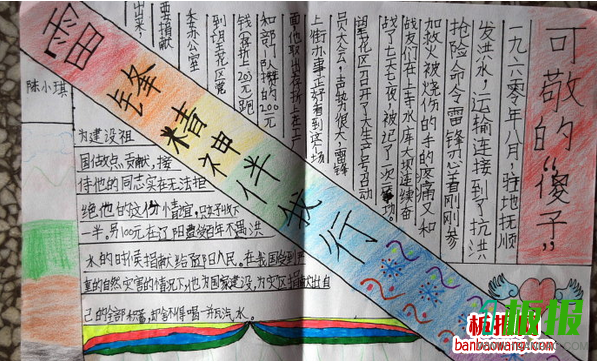 雷锋精神伴我行
可敬的“傻子”
一九六零年八月,驻地抚顺
发洪水,运输连接到了抗洪
抢险命令雷锋忍着刚刚参
加救火被烧伤的手的疼痛又和
战友们在上寺水库大坝连续奋
战了七天七夜,被记了一次
望花区召开了大生产号召动
员大会,声势很大,雷锋
上街办事正好看到这个场
面他取出存折上在工厂
和部队攒的200元
钱(存折上203元)跑
到望花区党
委办公室
要捐献
出来
陈小琪
为建设祖
国做点贡献,接
侍他的同志实在无法拒
绝他的这份情谊,只好收下
一半。另100元在辽阳遭受百年不遇洪
水的时候捐献给辽阳人民。在我国受到严
重的自然灾害的情况下,他为国家建设,为灾区捐献出自
己的全部积蓄,却舍不得喝一并瓦汽水。
板报网
banbaowang.com
板报